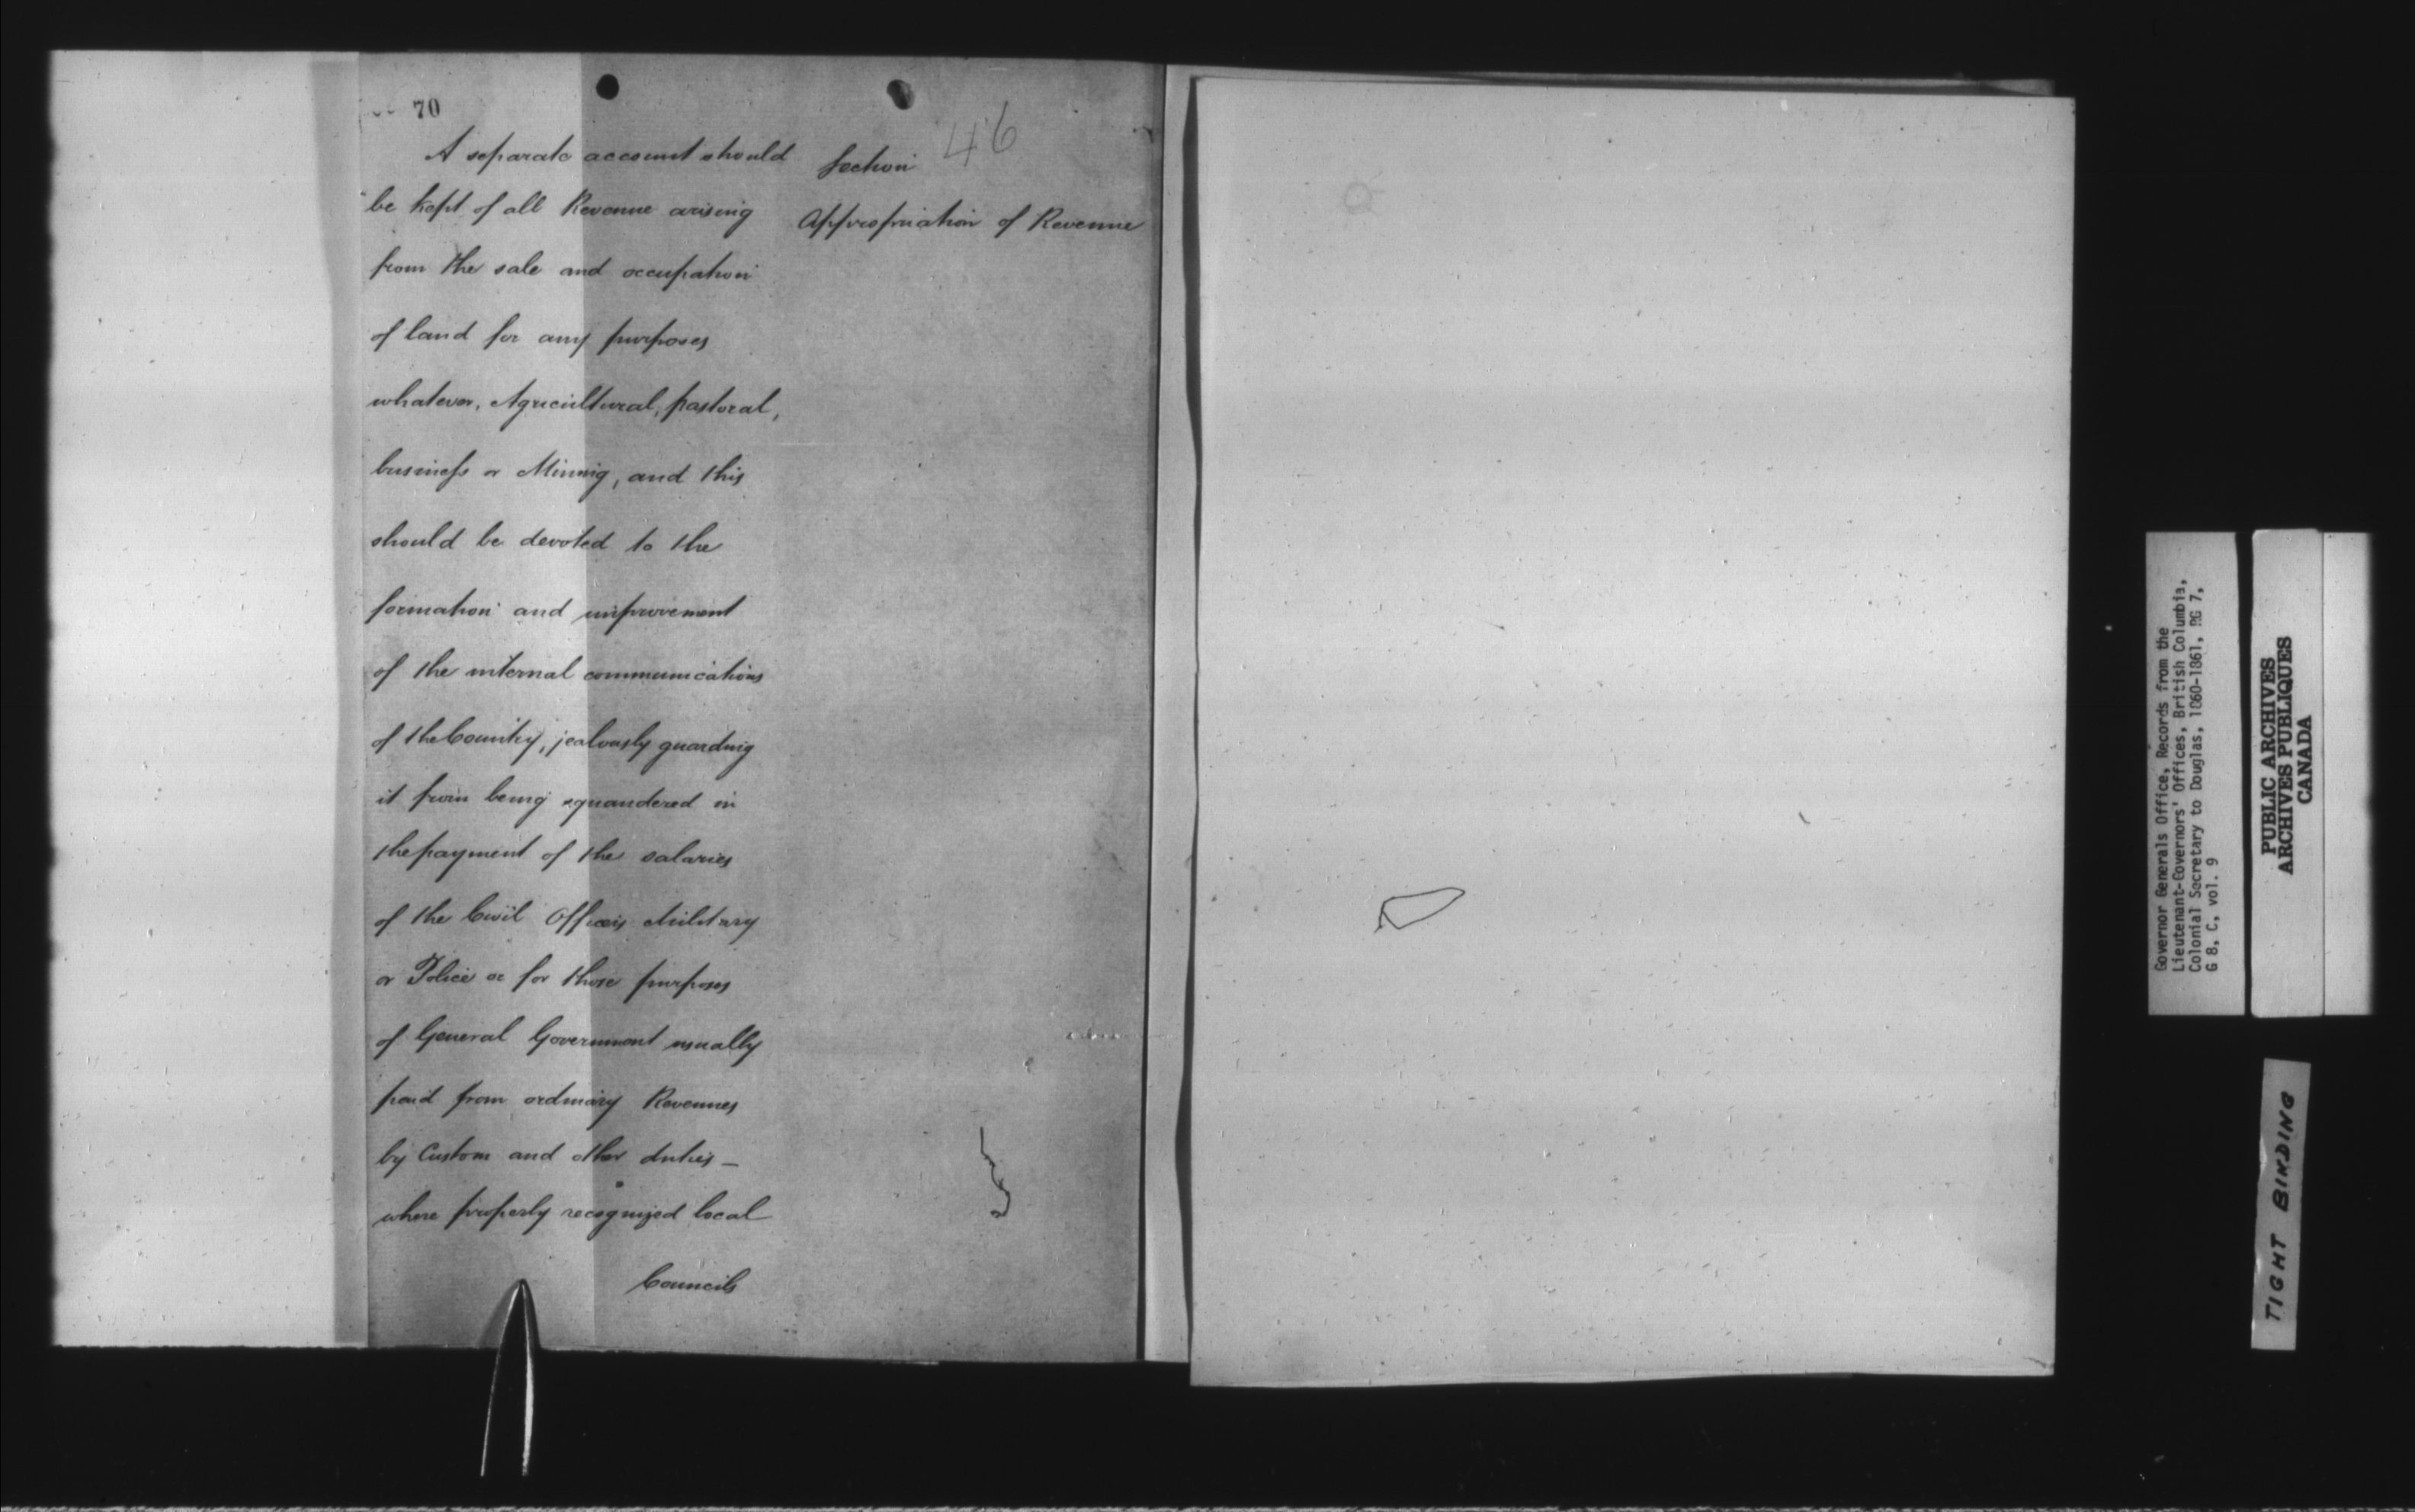 70
46
A separate account should
be kept of all Revenue arising
from the sale and occupation
of land for any purposes
whatever, Agricultural, pastoral,
business or Mining, and this
should be devoted to the
formation and improvement
of the internal communications
of the Country, jealously guarding
it from being squandered in
the payment of the salaries
of the Civil Officers Military
or Police or for those purposes
of General Government usually
paid from ordinary Revenues
by Custom and other duties —
where properly recognized local
Councils
Section
Appropriation of Revenue
Governor Generals Office, Records from the
Lieutenant-Governors' Offices, British Columbia,
Colonial Secretary to Douglas, 1860-1861, RG 7,
G 8, C, vol. 9
PUBLIC ARCHIVES
ARCHIVES PUBLIQUES
CANADA
TIGHT BINDING